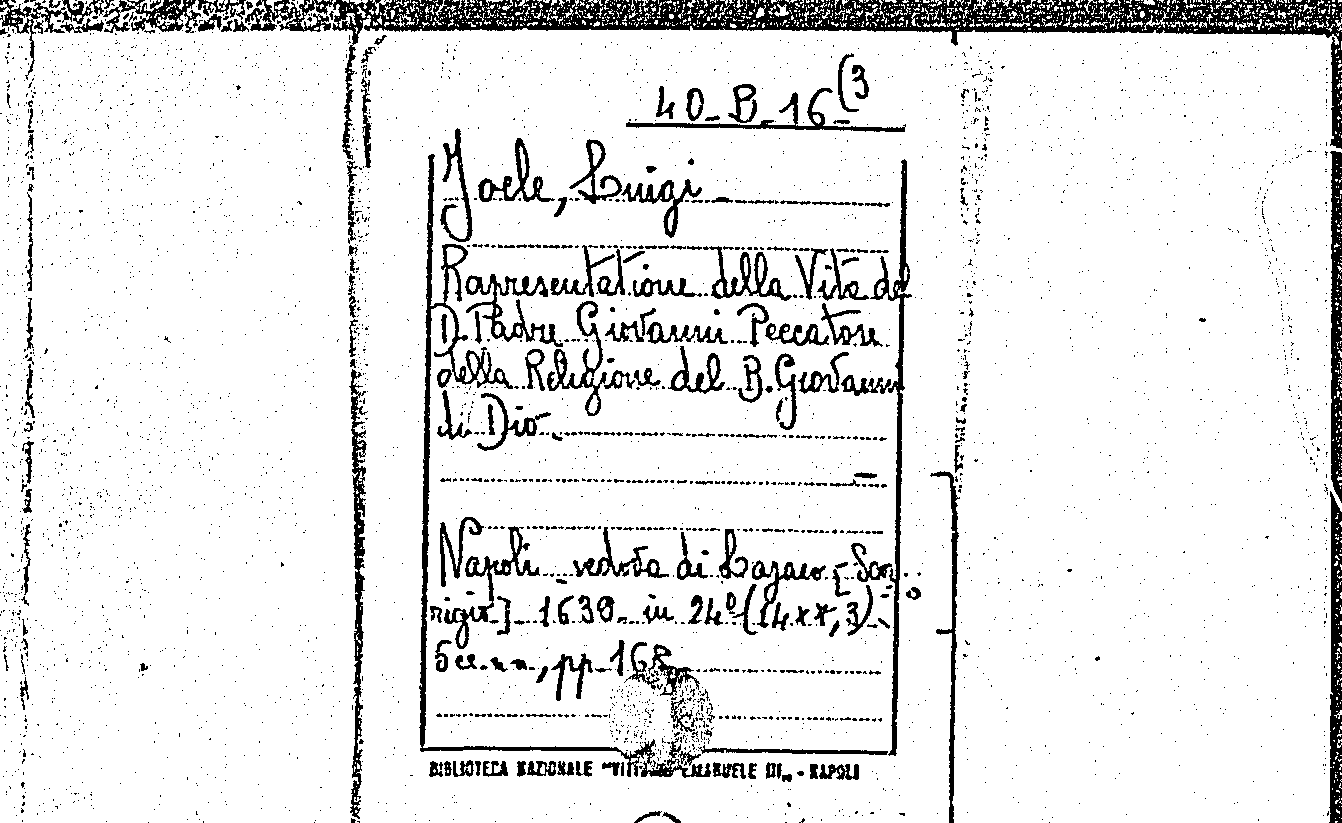 40-B-16(3
Joele, Luigi -
Rapresentatione della Vita del
D. Padre Giovanni Peccatore
della Religione del B. Giovanni
di Dio -
Napoli - vedova di Lazaro [Scor
rigio] - 1639 - in 24º (14 x 7,3) -
5 cc. nn., pp. 168
BIBLIOTECA NAZIONALE "VITTORIO EMANUELE III" - NAPOLI